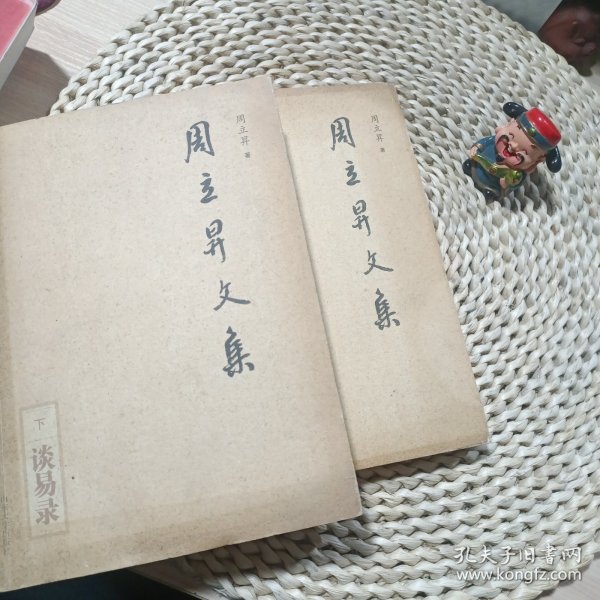 周立昇 著
周立昇文集
下
谈易录
周立昇 著
周立昇文集
孔夫子旧书网
www.kongfz.com